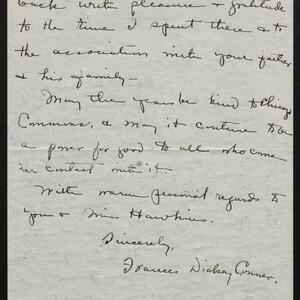 back with pleasure & gratitude
to the time I spent there & to
the association with your father
& his family —
May the years be kind to Chicago
Commons, & may it continue to be
a power for good to all who come
in contact with it.
With warm personal regards to
you & Miss Hawkins.
Sincerely,
Frances Dickey Conner.